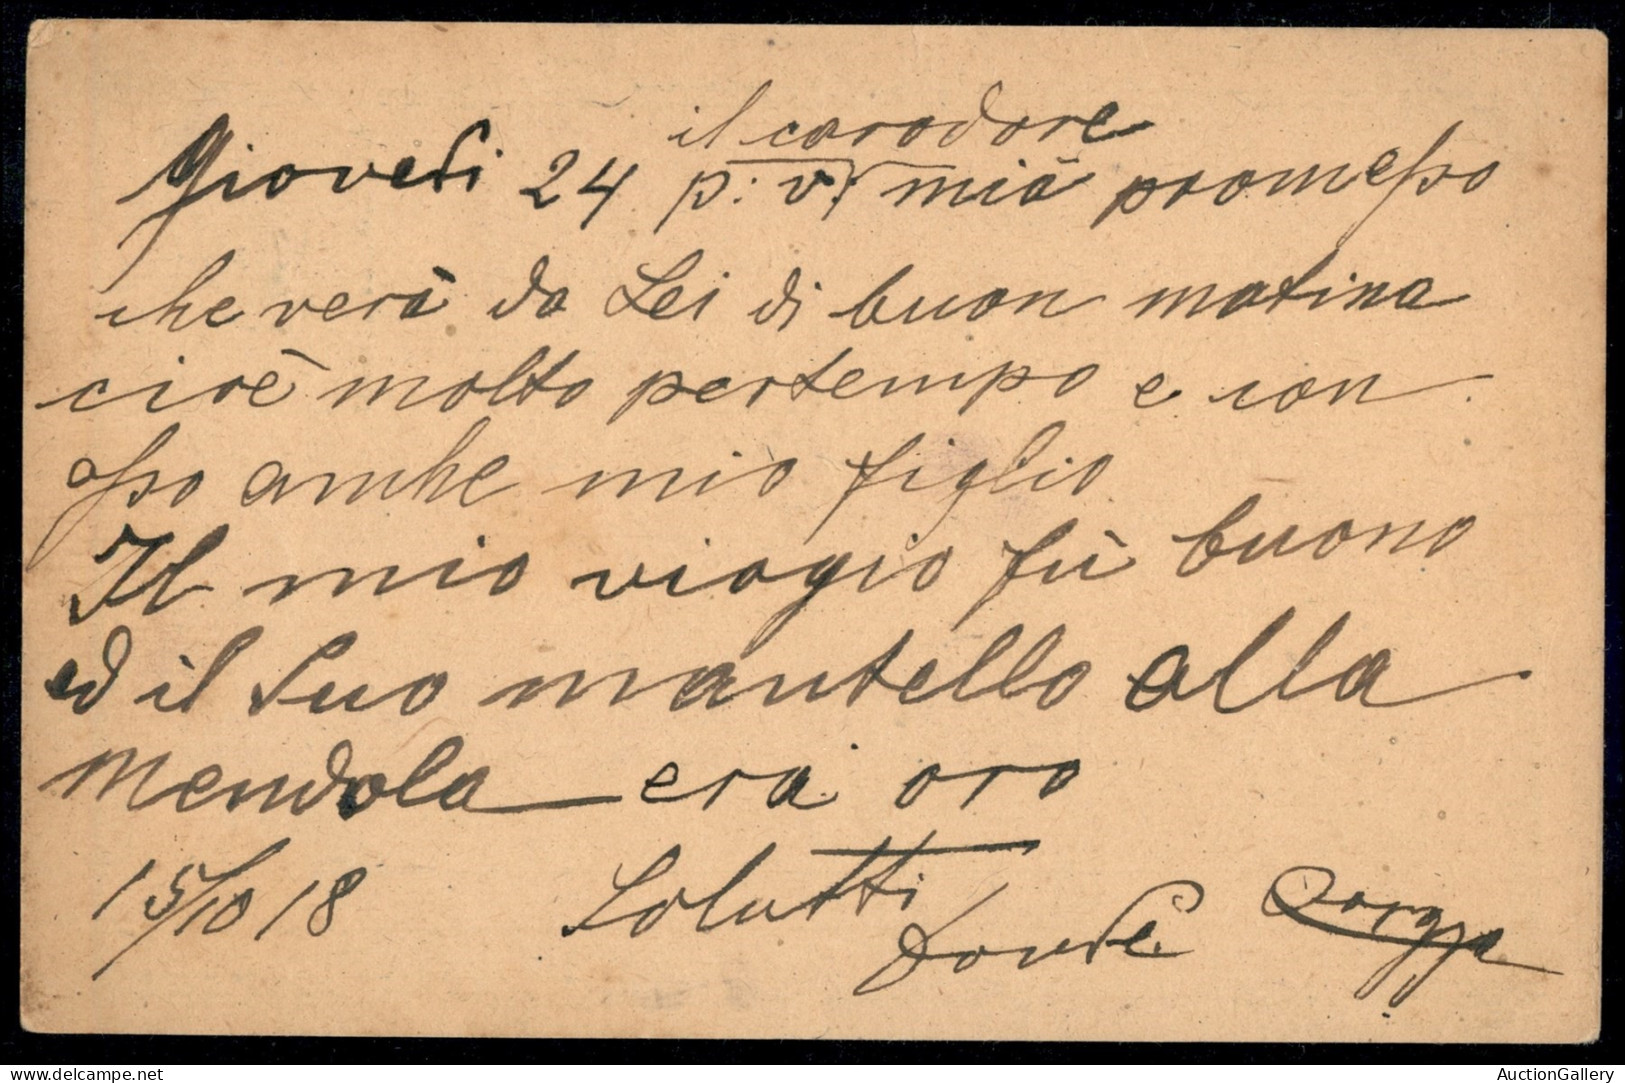 il carodore
Giovedi 24 p: v: mià promesso
che verà da Lei di buon matina
cioè molto pertempo e con
esso anche mio figlio
Il mio viagio fù buono
ed il Suo mantello alla
mendola era oro
15/10 18 Salutti
AuctionGallery